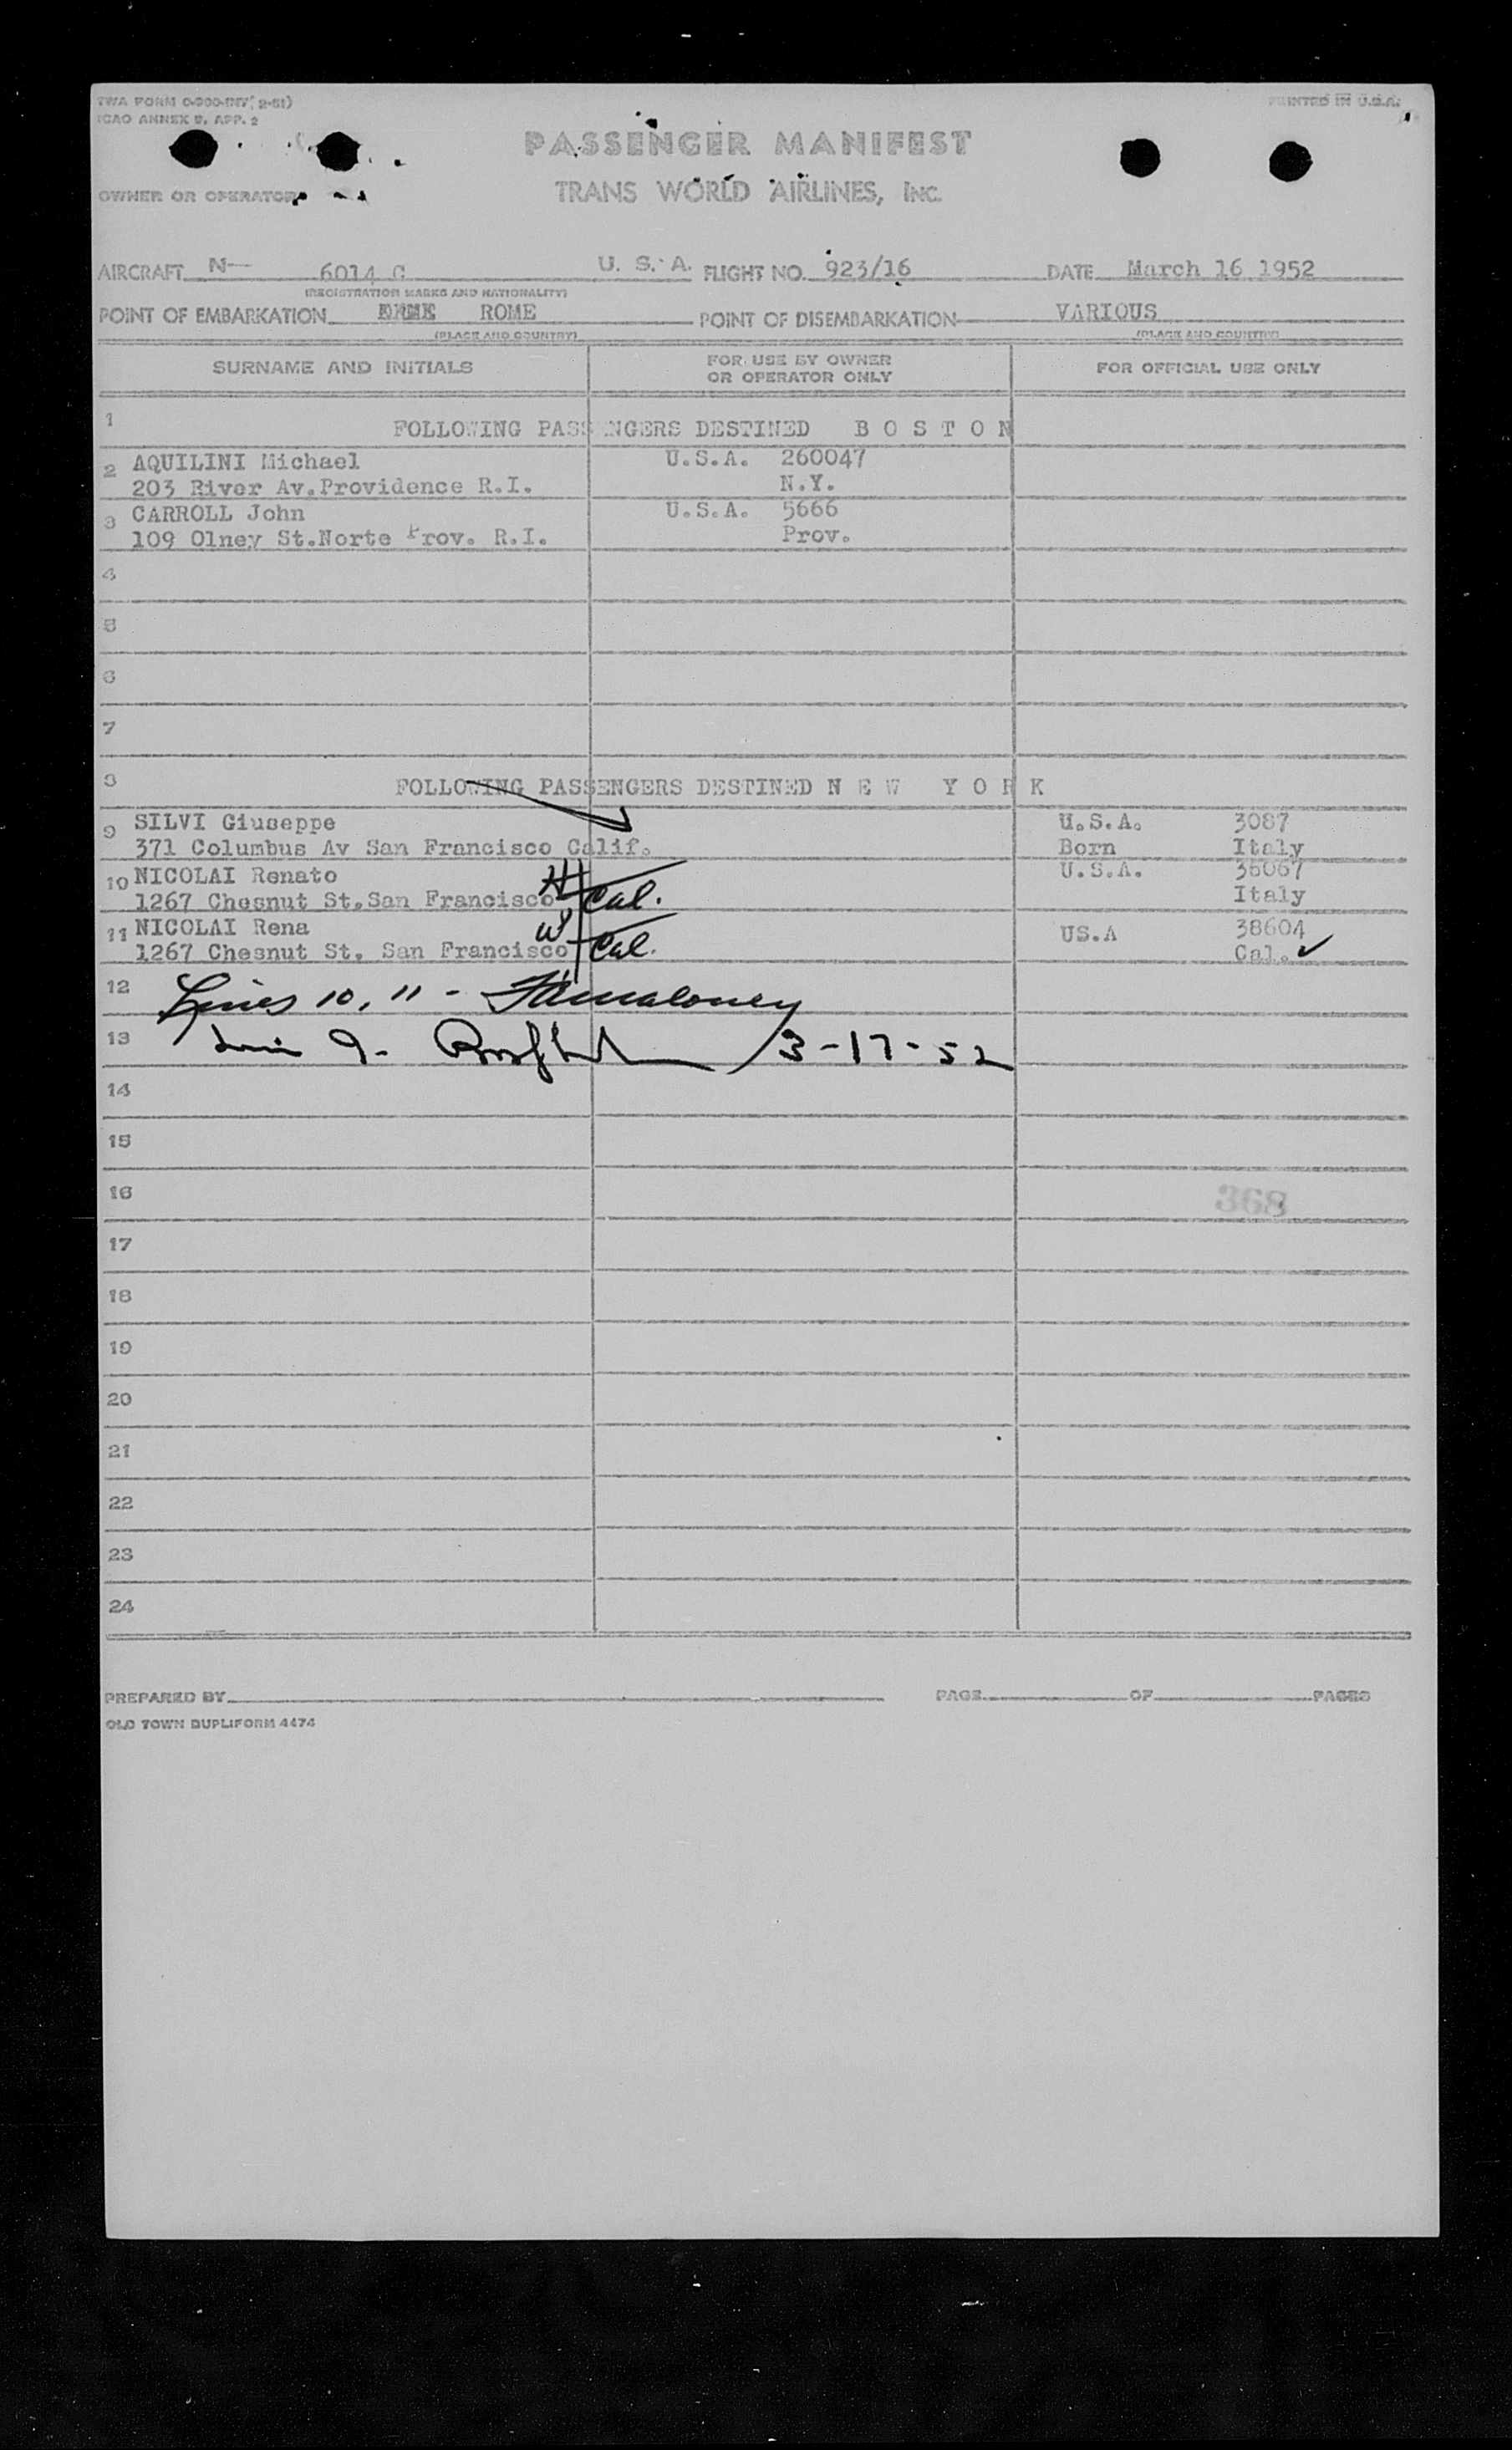 TWA FORM O-900-INT( 2-51) PRINTED IN U.S.A.
ICAO ANNEX 9, APP. 2
PASSENGER MANIFEST
OWNER OR OPERATOR TRANS WORLD AIRLINES, INC.
AIRCRAFT N— 6014 C U. S. A. FLIGHT NO. 923/16 DATE March 16 1952
(REGISTRATION MARKS AND NATIONALITY)
POINT OF EMBARKATION ROME POINT OF DISEMBARKATION VARIOUS
(PLACE AND COUNTRY) (PLACE AND COUNTRY)
SURNAME AND INITIALS FOR USE BY OWNER OR OPERATOR ONLY FOR OFFICIAL USE ONLY
1 FOLLOWING PASSENGERS DESTINED B O S T O N
2 AQUILINI Michael U.S.A. 260047
203 River Av.Providence R.I. N.Y.
3 CARROLL John U.S.A. 5666
109 Olney St.Norte Prov. R.I. Prov.
4
5
6
7
8 FOLLOWING PASSENGERS DESTINED N E W Y O R K
9 SILVI Giuseppe U.S.A. 3087
371 Columbus Av San Francisco Calif. Born Italy
10 NICOLAI Renato H U.S.A. 36067
1267 Chesnut St.San Francisco Cal. Italy
11 NICOLAI Rena W US.A 38604
1267 Chesnut St. San Francisco Cal. Cal. ✓
12 Lines 10, 11 -
13 Line 9- 3-17-52
14
15
16 368
17
18
19
20
21
22
23
24
PREPARED BY PAGE OF PAGES
OLD TOWN DUPLIFORM 4474